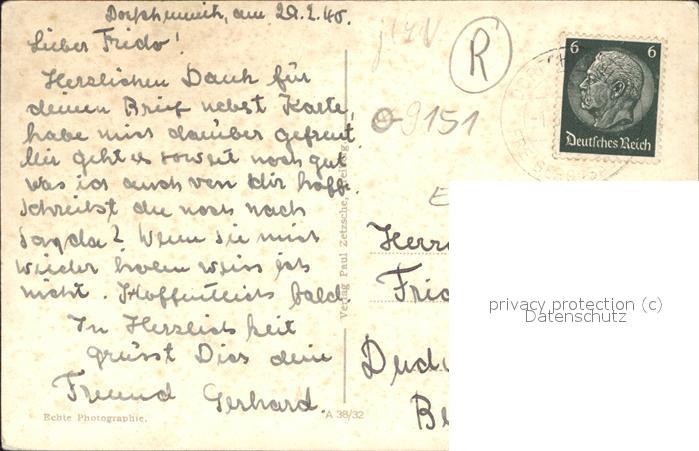 Dorfchemnitz, am 29.2.40.
Lieber Frido!
Herzlichen Dank für
deinen Brief nebst Karte,
habe mich darüber gefreut.
Mir geht es soweit noch gut
was ich auch von dir hoffe.
Schreibst du noch nach
? Wenn sie mich
wieder holen weiss ich
nicht. Hoffentlich bald.
In Herzlichkeit
grüsst Dich dein
Freund Gerhard.
Echte Photographie.
A 38/32
Verlag Paul Zetzsche,
R
9151
6 6
Deutsches Reich
Herrn
Frid
Dud
Be
privacy protection (c)
Datenschutz